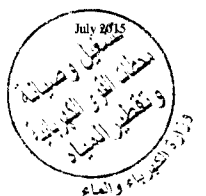 July 2015
تشغيل وصيانة
محطات القوى الكهربائية
وتقطير المياه
وزارة الكهرباء والماء